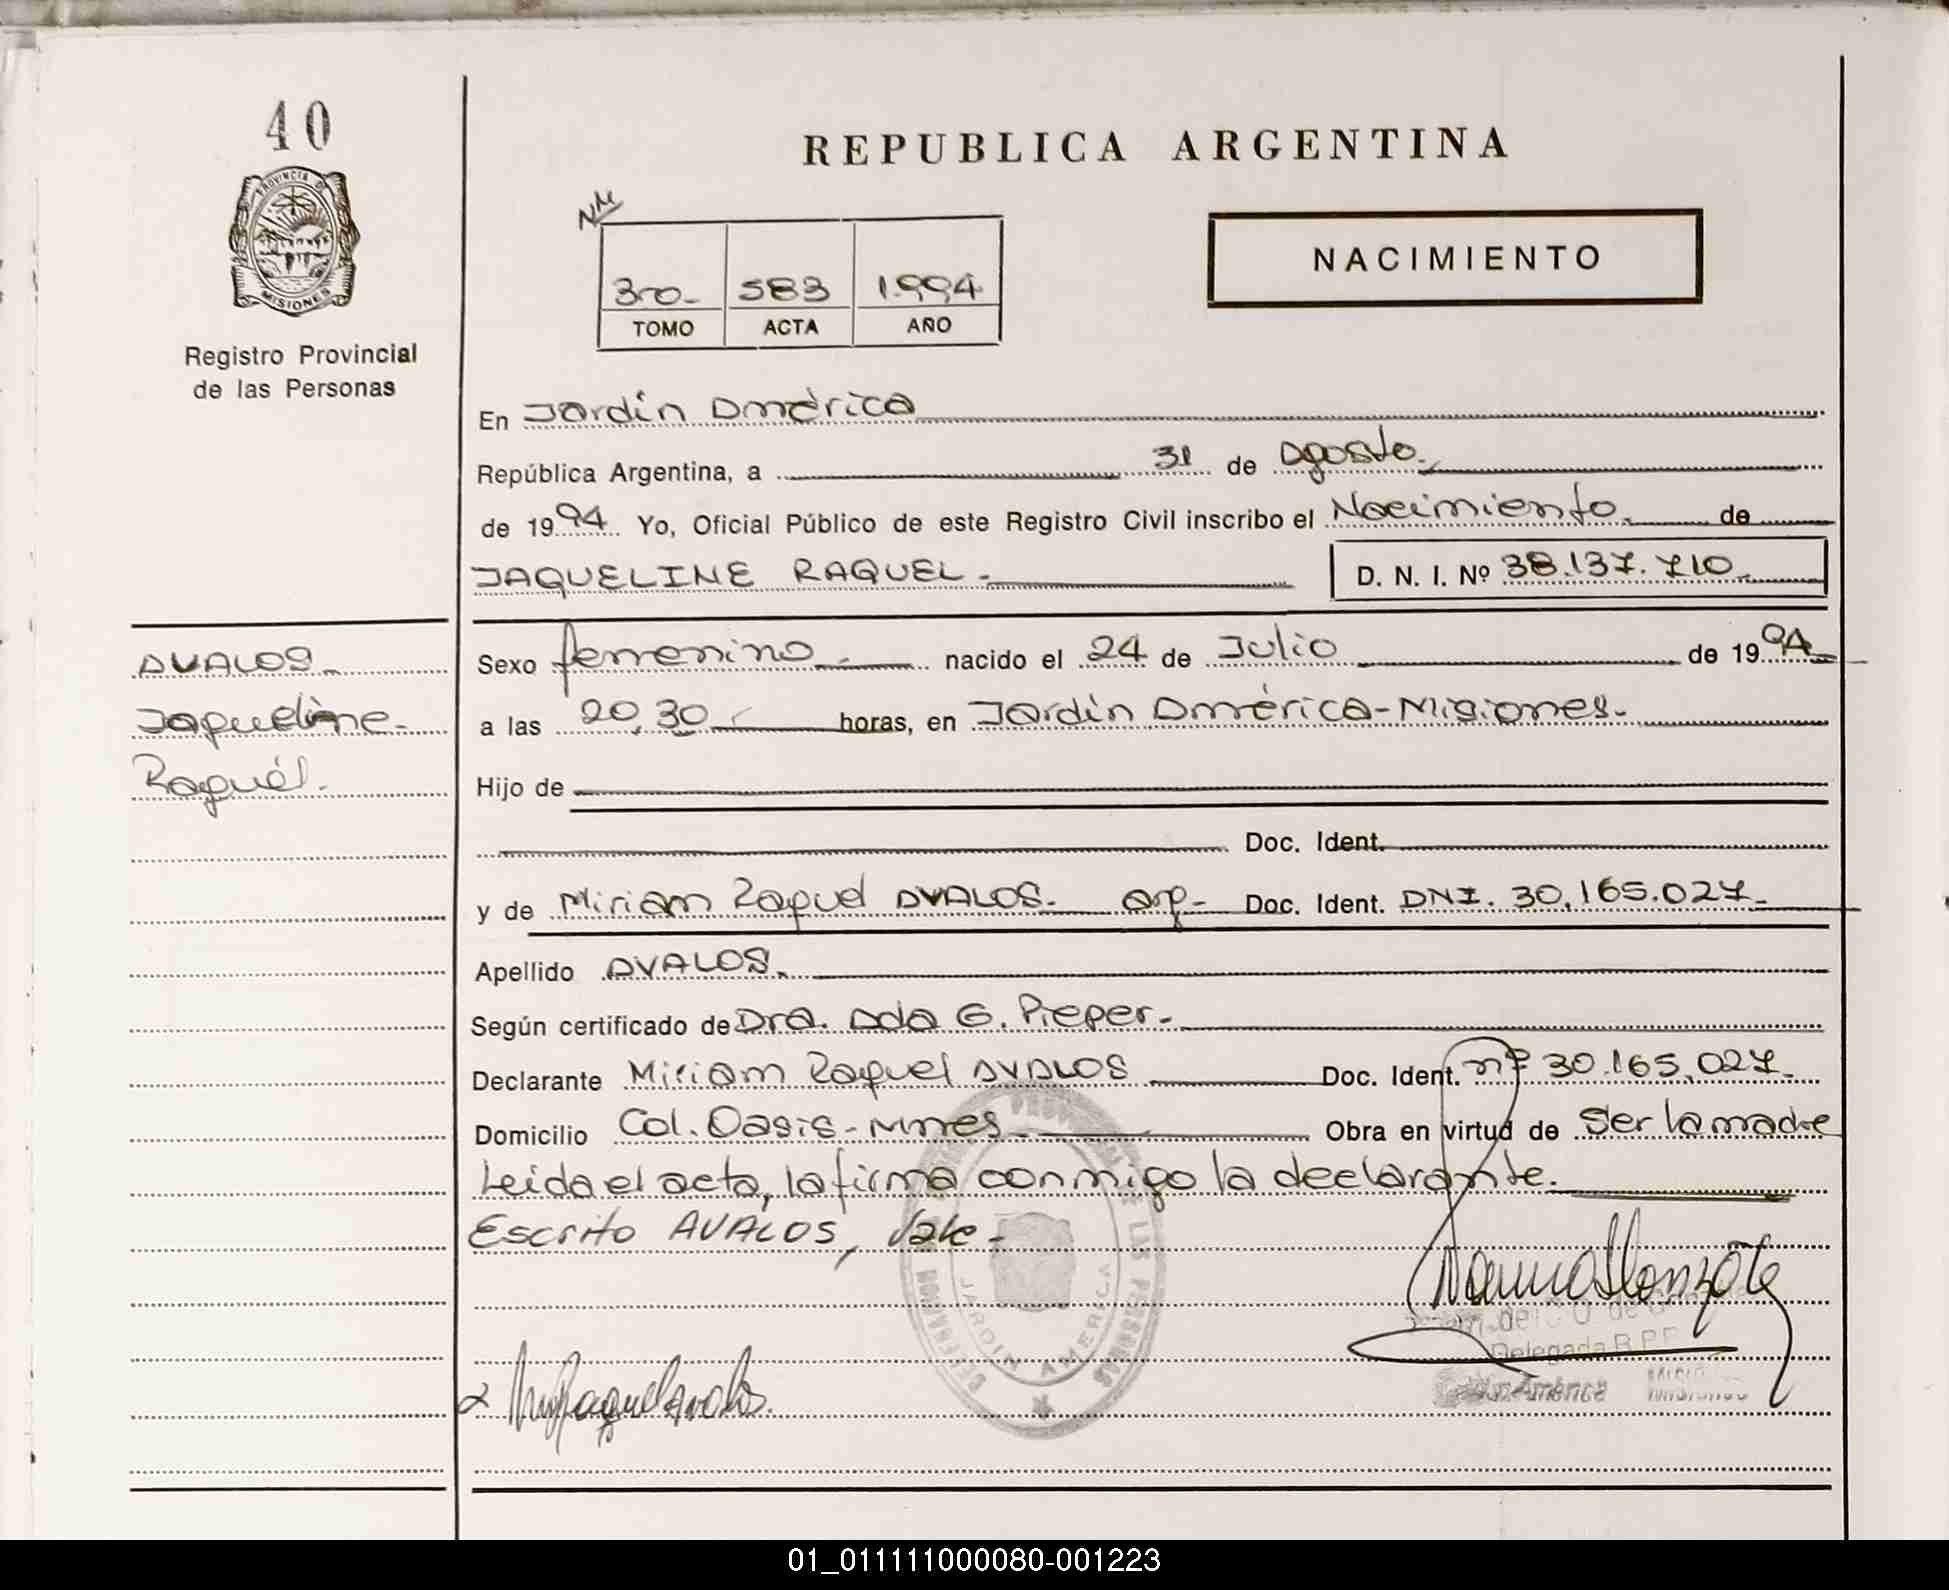 40
PROVINCIA DE
MISIONES
Registro Provincial
de las Personas
REPUBLICA ARGENTINA
NM
3ro. 583 1.994
TOMO ACTA AÑO
NACIMIENTO
En Jardín América
República Argentina, a 31 de Agosto.
de 1994. Yo, Oficial Público de este Registro Civil inscribo el Nacimiento. de
JAQUELINE RAQUEL.
D. N. I. Nº 38.137.710.
AVALOS.
Jaqueline.
Raquél.
Sexo femenino. nacido el 24 de Julio de 1994
a las 20,30 horas, en Jardín América-Misiones.
Hijo de
Doc. Ident.
y de Miriam Raquel AVALOS. arg. Doc. Ident. DNI. 30.165.027.
Apellido AVALOS.
Según certificado de Dra. Ada G. Pieper.
Declarante Miriam Raquel AVALOS Doc. Ident. nº 30.165.027.
Domicilio Col. Oasis-Mnes. Obra en virtud de Ser la madre
Leída el acta, la firma conmigo la declarante.
Escrito AVALOS, Vale-
LAS PERSONAS
JARDIN AMERICA
Delegada R.P.P.
América Misiones
01_011111000080-001223